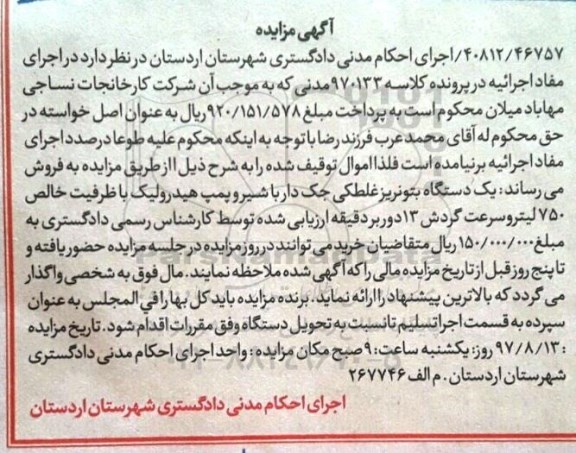 آگهی مزایده
۴۰۸۱۲/۴۶۷۵۷/اجرای احکام مدنی دادگستری شهرستان اردستان در نظر دارد در اجرای
مفاد اجرائیه در پرونده کلاسه ۹۷۰۱۳۳مدنی که به موجب آن شرکت کارخانجات نساجی
مهاباد میلان محکوم است به پرداخت مبلغ ۹۲۰/۱۵۱/۵۷۸ریال به عنوان اصل خواسته در
حق محکوم له آقای محمد عرب فرزند رضا با توجه به اینکه محکوم علیه طوعا درصدد اجرای
مفاد اجرائیه برنیامده است فلذا اموال توقیف شده را به شرح ذیل ااز طریق مزایده به فروش
می رساند: یک دستگاه بتونریز غلطکی جک دار با شیر و پمپ هیدرولیک با ظرفیت خالص
۷۵۰ لیتر و سرعت گردش ۱۳دور بر دقیقه ارزیابی شده توسط کارشناس رسمی دادگستری به
مبلغ ۱۵۰/۰۰۰/۰۰۰ریال متقاضیان خرید می توانند در روز مزایده در جلسه مزایده حضور یافته و
تا پنج روز قبل از تاریخ مزایده مالی را که آگهی شده ملاحظه نمایند. مال فوق به شخصی واگذار
می گردد که بالاترین پیشنهاد را ارائه نماید. برنده مزایده باید کل بها را فی المجلس به عنوان
سپرده به قسمت اجرا تسلیم تا نسبت به تحویل دستگاه وفق مقررات اقدام شود. تاریخ مزایده
:۹۷/۸/۱۳ روز: یکشنبه ساعت: ۹ صبح مکان مزایده: واحد اجرای احکام مدنی دادگستری
شهرستان اردستان. م الف ۲۶۷۷۴۶
اجرای احکام مدنی دادگستری شهرستان اردستان